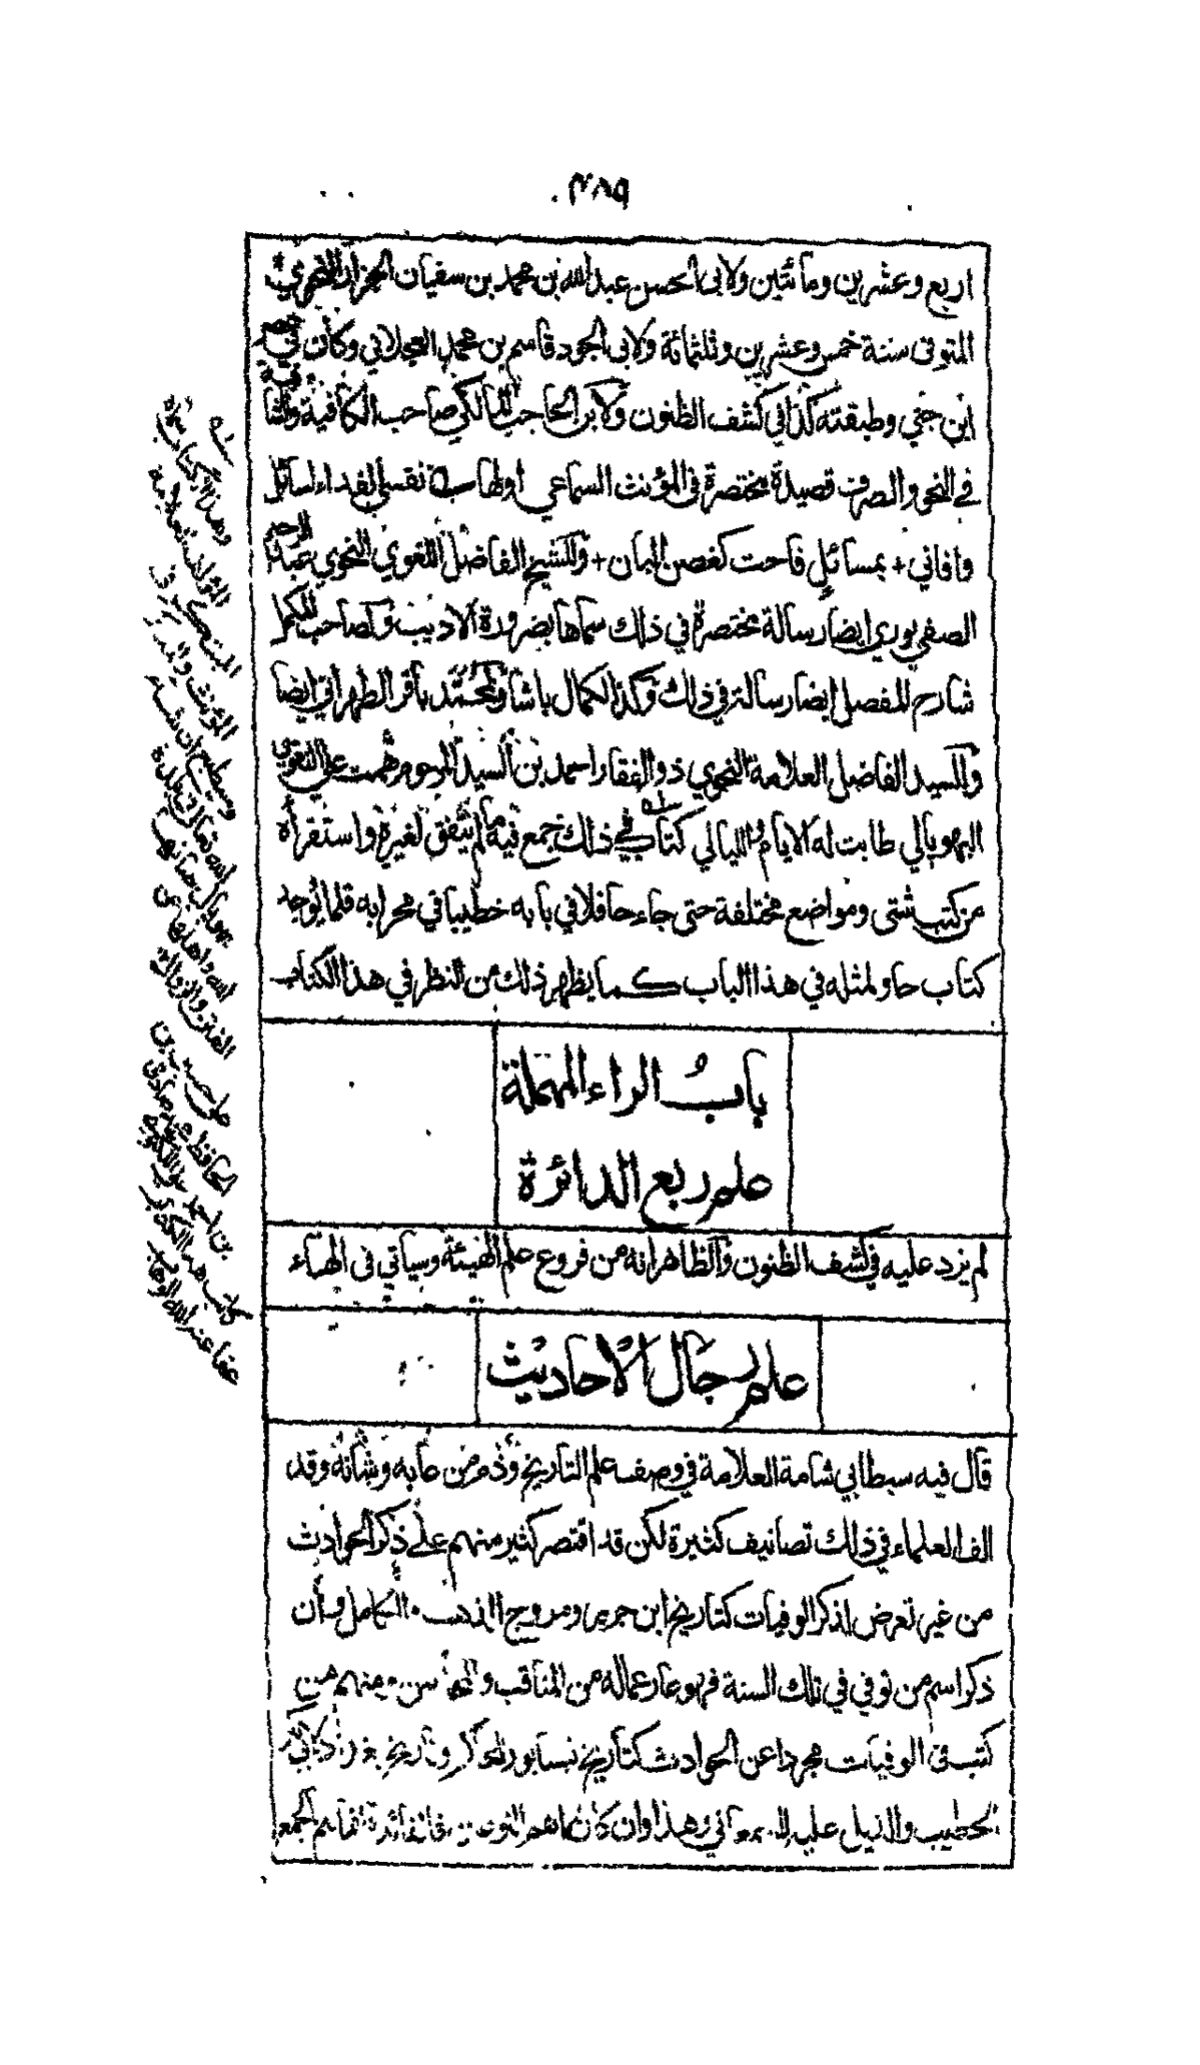 ٤٨٩
اربع وعشرين ومائتين ولابى الحسن عبدالله بن محمد بن سفيان الخزاز النحوي
المتوفى سنة خمس وعشرين وثلثمائة ولابى الجود قاسم بن محمد العجلاني وكان في عصر
ابن جني وطبقته كذا في كشف الظنون ولابن الحاجب المالكي صاحب الكافية والشافية
في النحو والصرف قصيدة مختصرة في المؤنث السماعي اولها نفسي الفداء لسائل
وافاني + بمسائل فاحت كغصن البان + وللشيخ الفاضل اللغوي النحوي عبد الرحيم
الصفي پوري ايضا رسالة مختصرة في ذلك سماها بضرورة الاديب ولصاحب المكمل
شارح المفصل ايضا رسالة في ذلك وكذا لكمال باشا ولمحمد باقر الطهراني ايضا
وللسيد الفاضل العلامة النحوي ذو الفقار احمد بن السيد المرحوم همت علي النقوي
البهوپالي طابت له الايام والليالي كتاب في ذلك جمع فيه ما لم يتفق لغيره واستقرأه
من كتب شتى ومواضع مختلفة حتى جاء حافلا في بابه خطيبا في محرابه قلما يوجد
كتاب حاو لمثله في هذا الباب كما يظهر ذلك من النظر في هذا الكتاب
باب الراء المهملة
علم ربع الدائرة
لم يزد عليه في كشف الظنون والظاهر انه من فروع علم الهيئة وسياتي في الهاء
علم رجال الاحاديث
قال فيه سبط ابي شامة العلامة في وصف علم التاريخ وذم من عابه وشانه وقد
الف العلماء في ذلك تصانيف كثيرة لكن قد اقتصر كثير منهم على ذكر الحوادث
من غير تعرض لذكر الوفيات كتاريخ ابن جرير ومروج الذهب والكامل وان
ذكر اسم من توفي في تلك السنة فهو عار عما له من المناقب والمحاسن ومنهم من
كتب في الوفيات مجردا عن الحوادث كتاريخ نيسابور للحاكم وتاريخ بغداد لابي بكر
الخطيب والذيل عليه للسمعاني وهذا وان كان اهم النوعين فالفائدة انما تتم بالجمع
وهذا الكتاب
المؤنث
ان شاء
الله تعالى
بهوپال صانها
الله واهلها عن
الفتن والزوال
الحافظ
بن احمد
كاتب هذا الكتاب
عفا عنه الله الوهاب